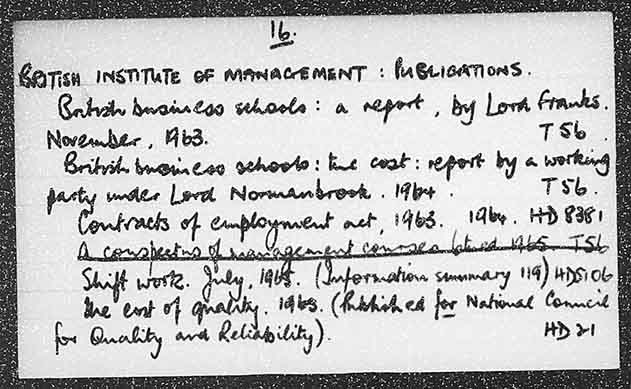 16.
BRITISH INSTITUTE OF MANAGEMENT : PUBLICATIONS.
British business schools : a report, by Lord Franks.
November, 1963. T56
British business schools : the cost : report by a working
party under Lord Normanbrook. 1964. T56.
Contracts of employment act, 1963. 1964. HD8381
A conspectus of management courses 1965 T56
Shift work. July, 1965. (Information summary 119) HD5106
The cost of quality. 1965. (Published for National Council
for Quality and Reliability). HD21